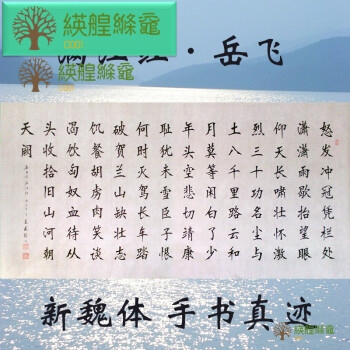 ·岳飞
怒发冲冠凭栏处
潇潇雨歇抬望眼
仰天长啸壮怀激
烈三十功名尘与
土八千里路云和
月莫等闲白了少
年头空悲切靖康
耻犹未雪臣子恨
何时灭驾长车踏
破贺兰山缺壮志
饥餐胡虏肉笑谈
渴饮匈奴血待从
头收拾旧山河朝
天阙
新魏体 手书真迹